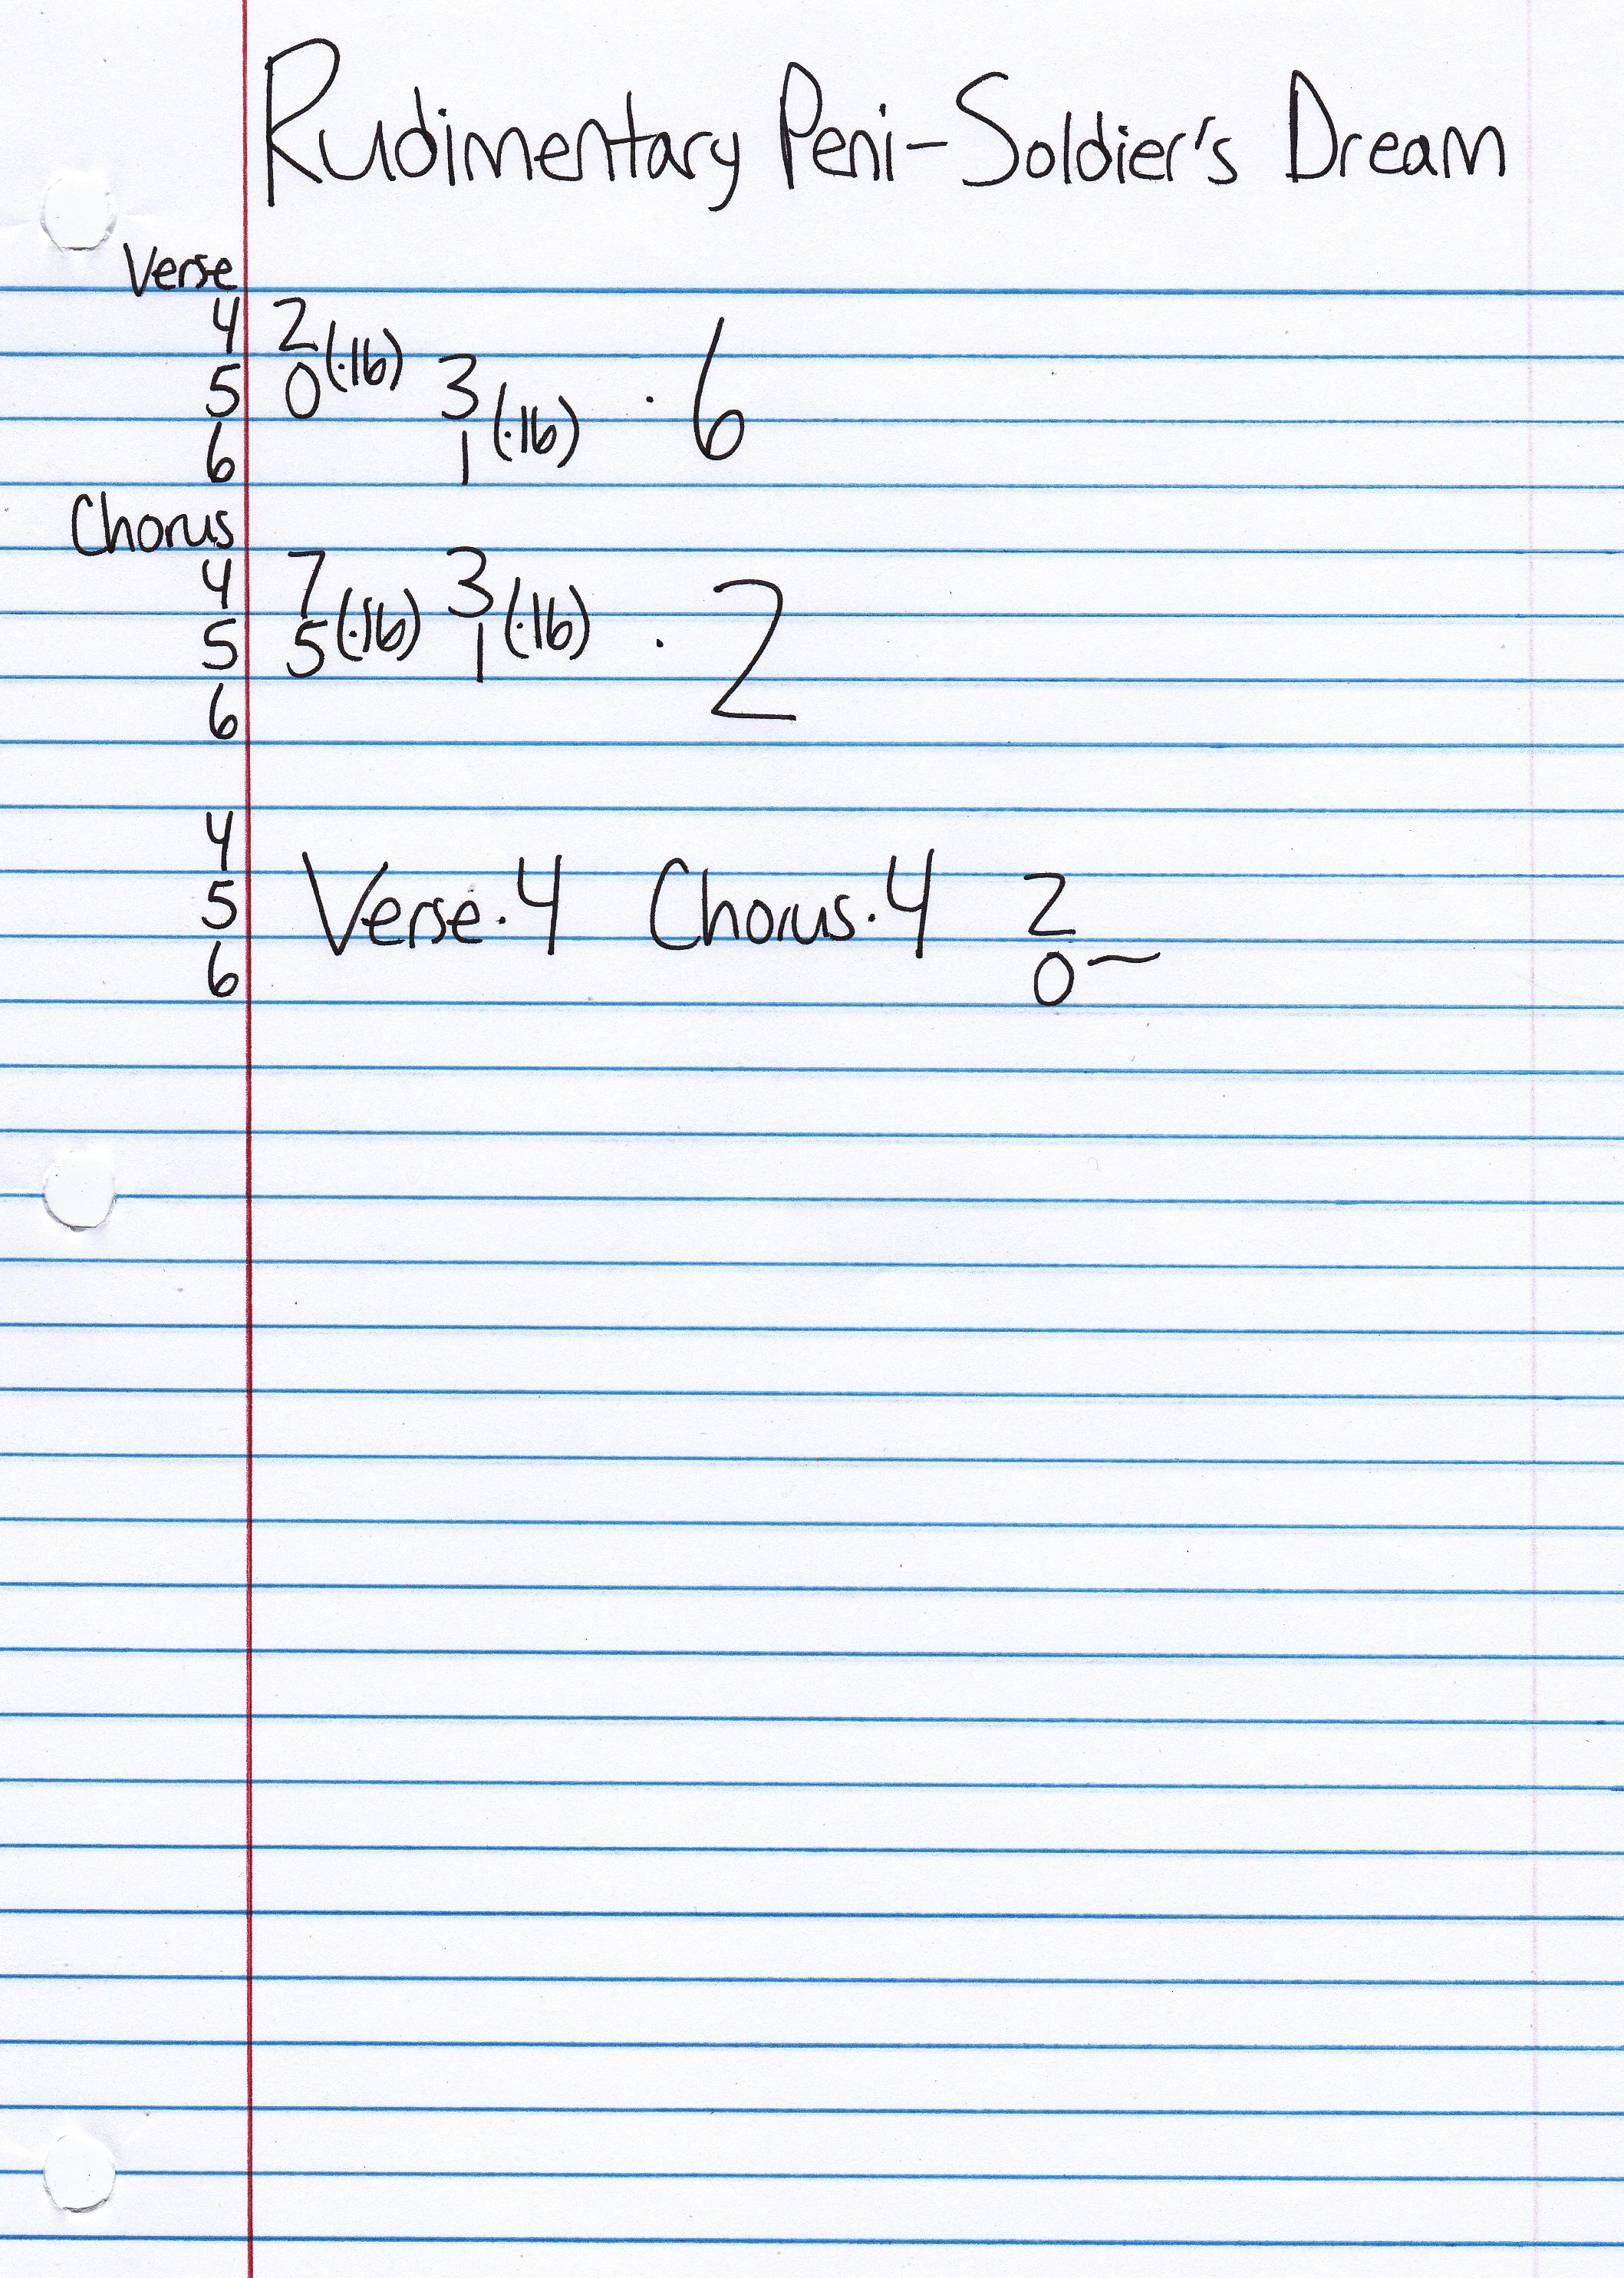 Rudimentary Peni-Soldier's Dream
Verse
4 2
5 0(·16) 3 · 6
6 1(·16)
Chorus
4 7 3
5 5(·16) 1(·16) · 2
6
4
5 Verse·4 Chorus·4 2
6 0~